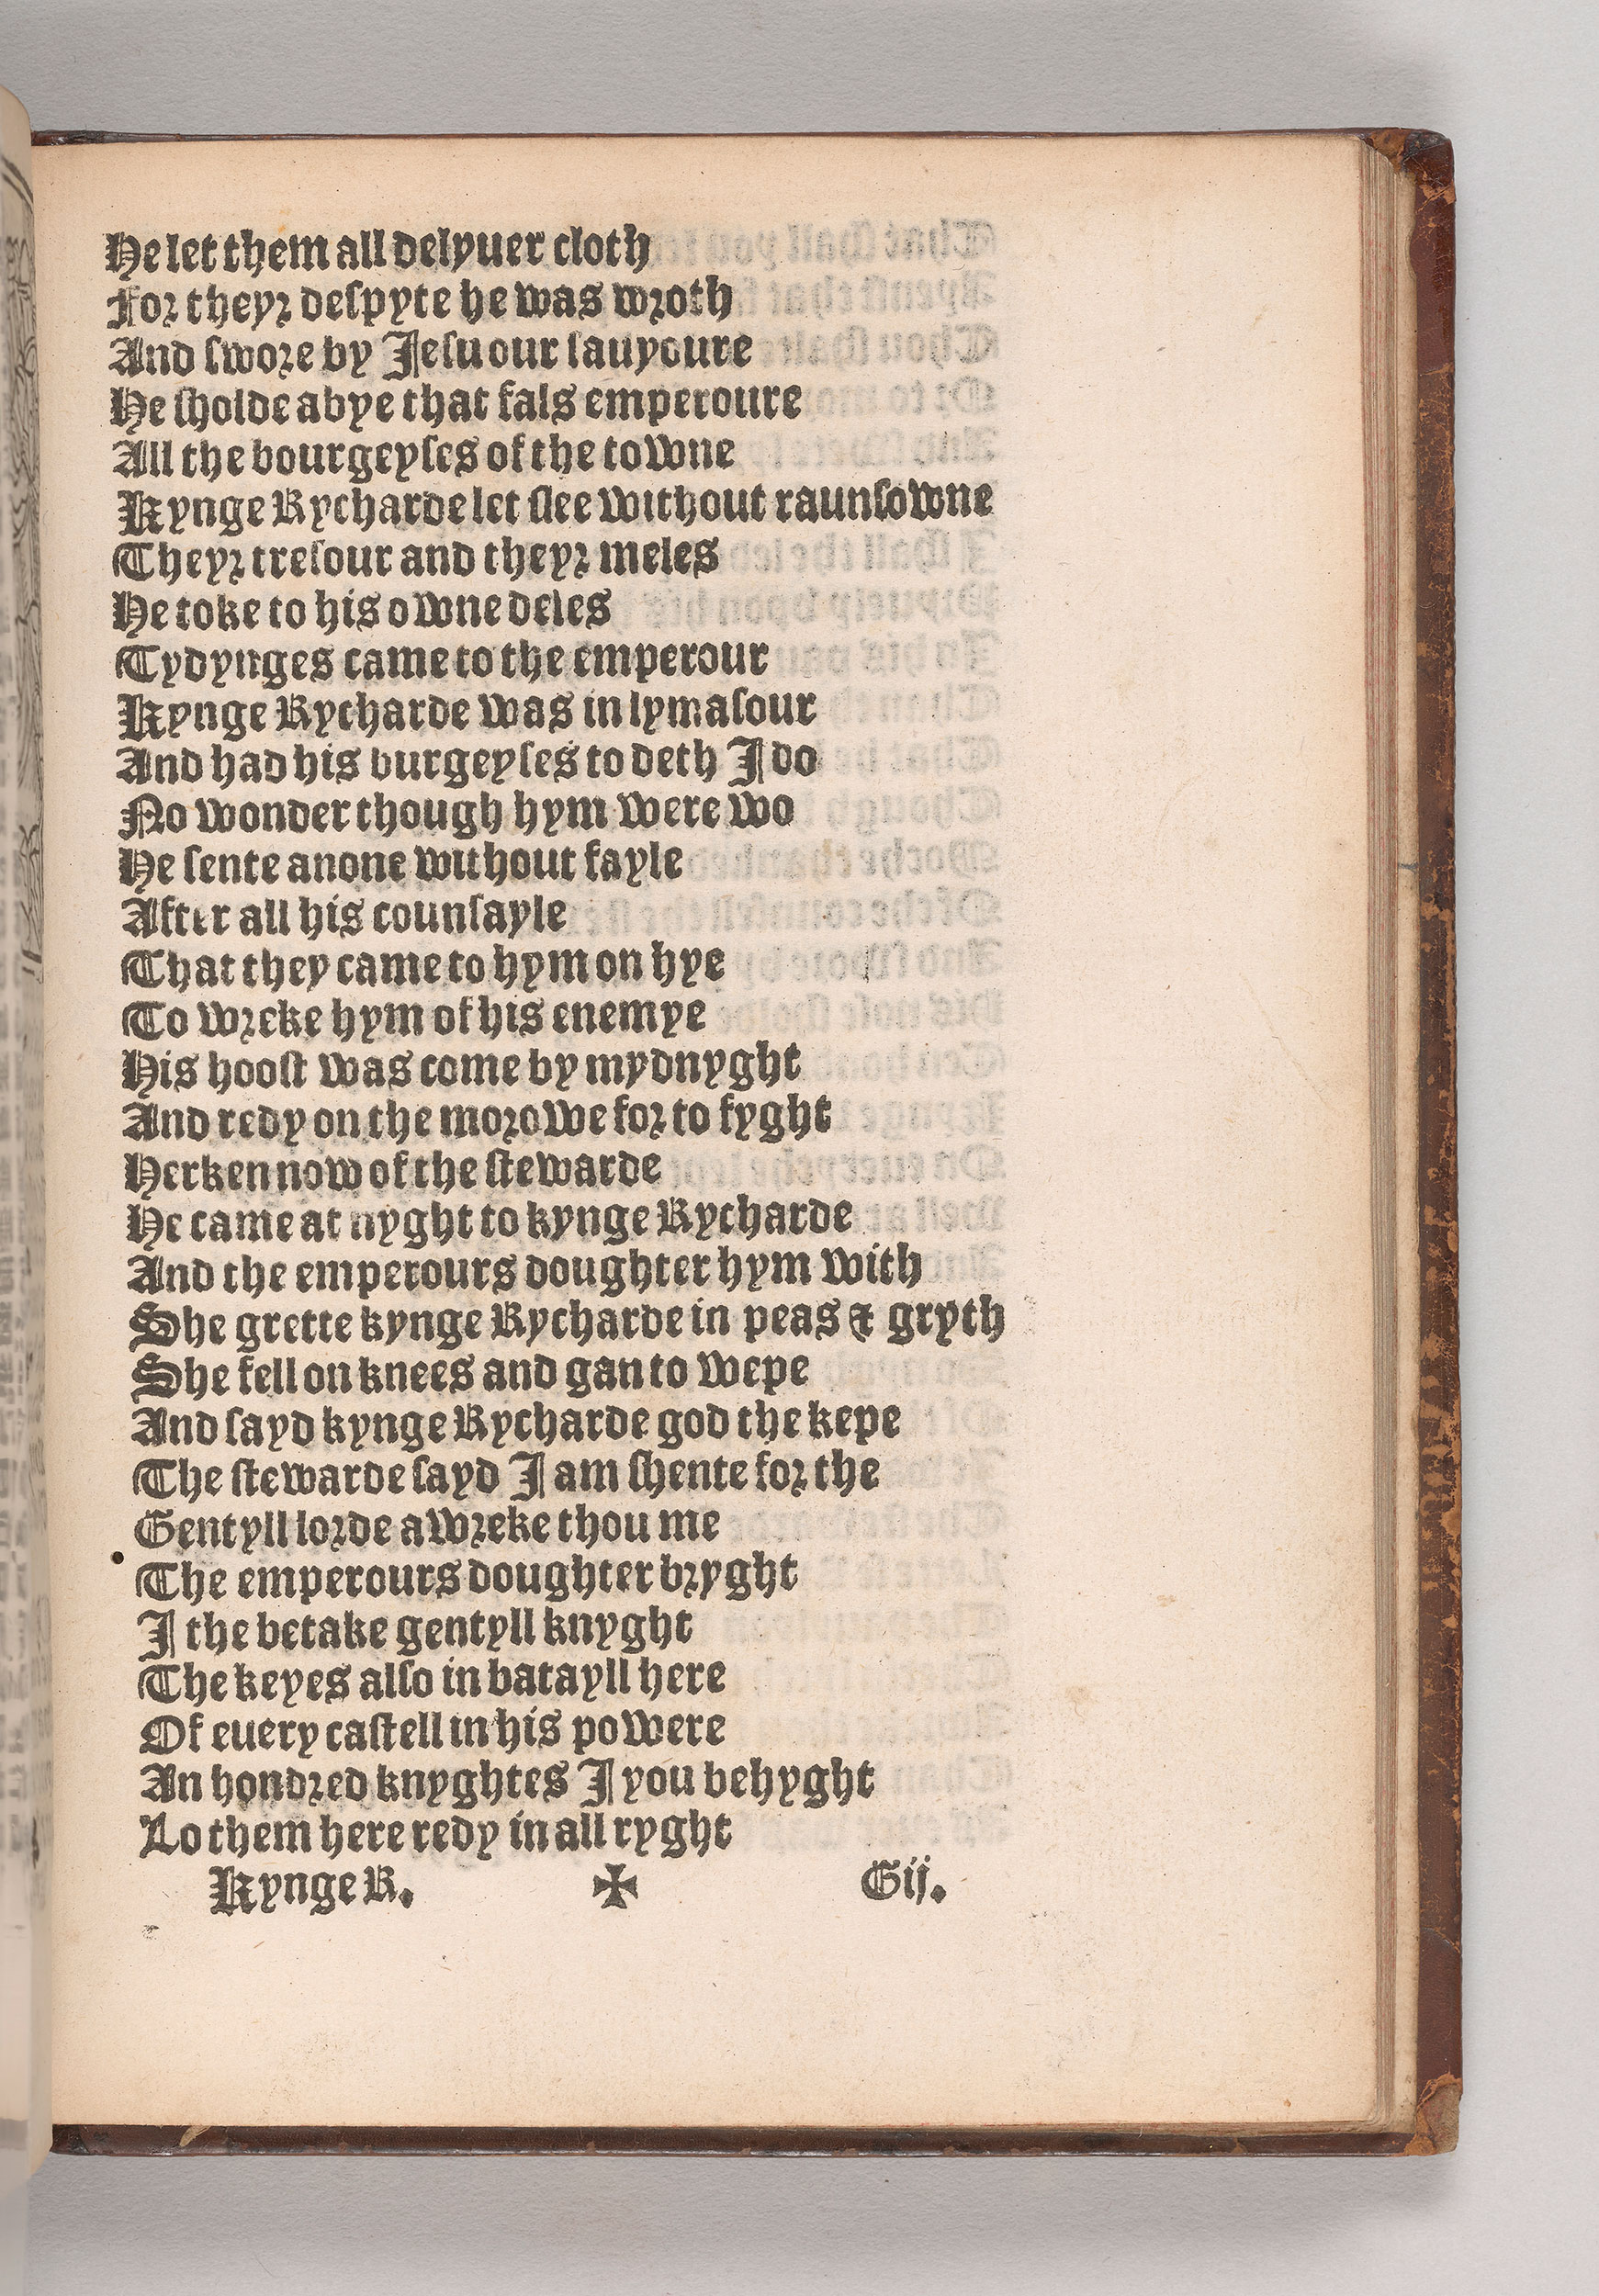 He let them all delyuer cloth
For theyr deſpyte he was wroth
And ſwore by Jeſu our ſauyoure
He ſholde abye that fals emperoure
All the bourgeyſes of the towne
Kynge Rycharde let ſlee without raunſowne
Theyr treſour and theyr meles
He toke to his owne deles
Tydynges came to the emperour
Kynge Rycharde was in lymaſour
And had his burgeyſes to deth I do
No wonder though hym were wo
He ſente anone without fayle
After all his counſayle
That they came to hym on hye
To wreke hym of his enemye
His hooſt was come by mydnyght
And redy on the morowe for to fyght
Herken now of the ſtewarde
He came at nyght to kynge Rycharde
And the emperours doughter hym with
She grette kynge Rycharde in peas & gryth
She fell on knees and gan to wepe
And ſayd kynge Rycharde god the kepe
The ſtewarde ſayd I am ſhente for the
Gentyll lorde a wreke thou me
The emperours doughter bryght
I the betake gentyll knyght
The keyes alſo in batayll here
Of euery caſtell in his powere
An hondred knyghtes I you behyght
Lo them here redy in all ryght
Kynge R. ✠ Gij.